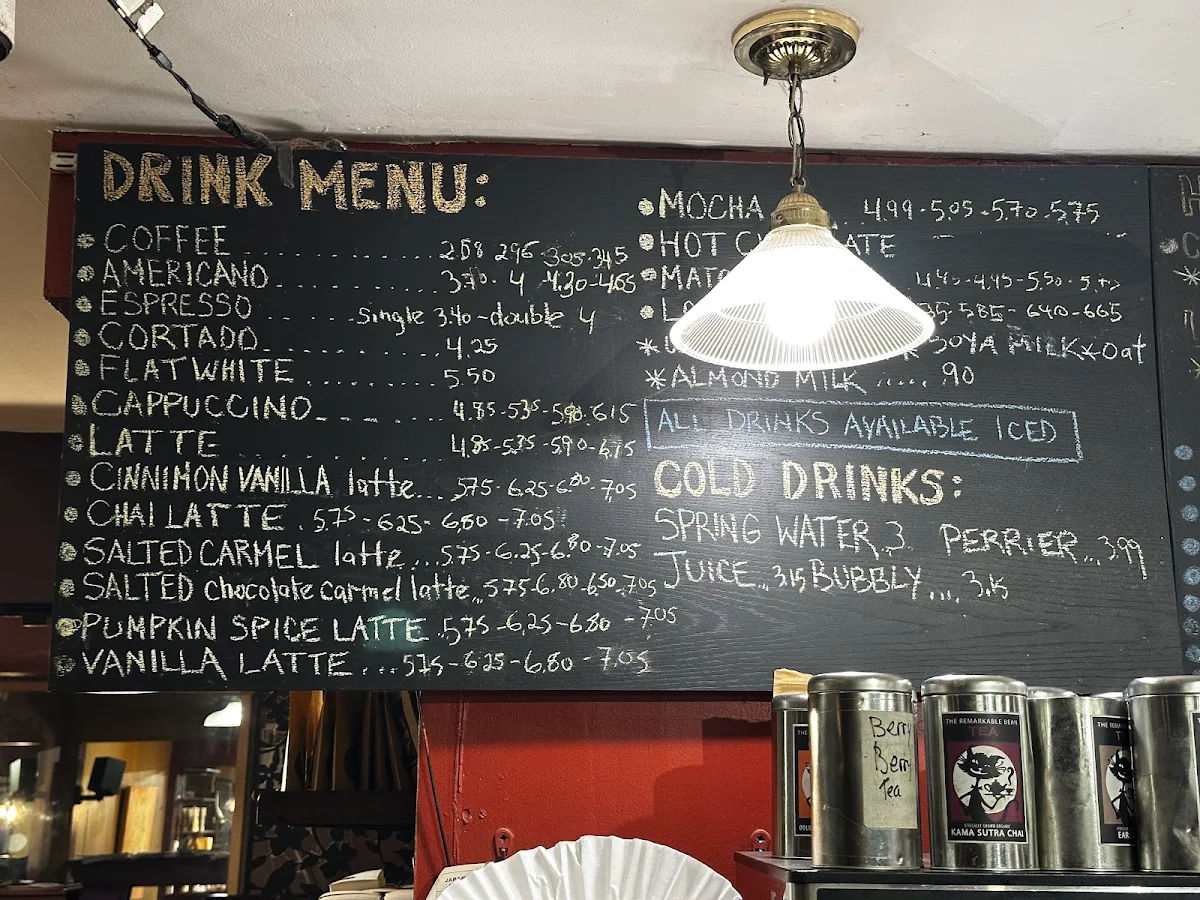 DRINK MENU:
COFFEE ........ 2.58 2.96 3.05 .3.45
AMERICANO ........ 4 4.30-4.65
ESPRESSO .... single 3.40-double 4
CORTADO ........ 4.25
FLAT WHITE ........ 5.50
CAPPUCCINO ........ 4.85-535-5.90-6.15
LATTE ........ 4.85-5.35-5.90-6.75
CINNIMON VANILLA latte... 575-6.25-6.80-7.05
CHAI LATTE . 5.75-625-6,80-7.05
SALTED CARMEL latte...5.75-6.25-6.80-7.05
SALTED chocolate carmel latte... 575-6.80-6.50-7.05
PUMPKIN SPICE LATTE .575-6.25-6.80-7.05
VANILLA LATTE ... 575-625-6.80-7.05
MOCHA 4.99-5.05-5.70.5.75
HOT ATE
585-640-665
SOYA MILK*oat
*ALMOND MILK ..... .90
ALL DRINKS AVAILABLE ICED
COLD DRINKS:
SPRING WATER..3 PERRIER...3.99
JUICE...3.15 BUBBLY.... 3.15
Berry
Berry
Tea
THE REMARKABLE BEAN
TEA
KAMA SUTRA CHAI
EAR